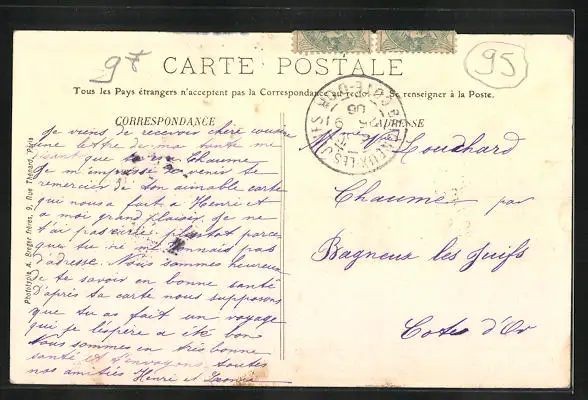 97
95
CARTE POSTALE
Tous les Pays étrangers n'acceptent pas la Correspondance au recto. Se renseigner à la Poste.
CORRESPONDANCE
ADRESSE
Je viens de recevoir chère cousine
une lettre de ma tante me
disant que tu Chaume
Je m'impresse de venir te
remercier de ton aimable carte
qui nous a fait à Henri et
a moi grand plaisir je ne
t'ai pas écrit plutot parce
que tu ne me donnais pas
d'adresse. Nous sommes heureux
de te savoir en bonne santé
d'après ta carte nous supposons
que tu as fait un voyage
qui je l'espère a été bon
Nous sommes en très bonne
santé et t'envoyons toutes
nos amitiés Henri et
Couchard
Chaume par
Bagneux les Juifs
Cote d'Or
BAGNEUX-LES-JUIFS
COTE-D'OR
Phototypie A. Breger frères, 9, Rue Thénard, Paris